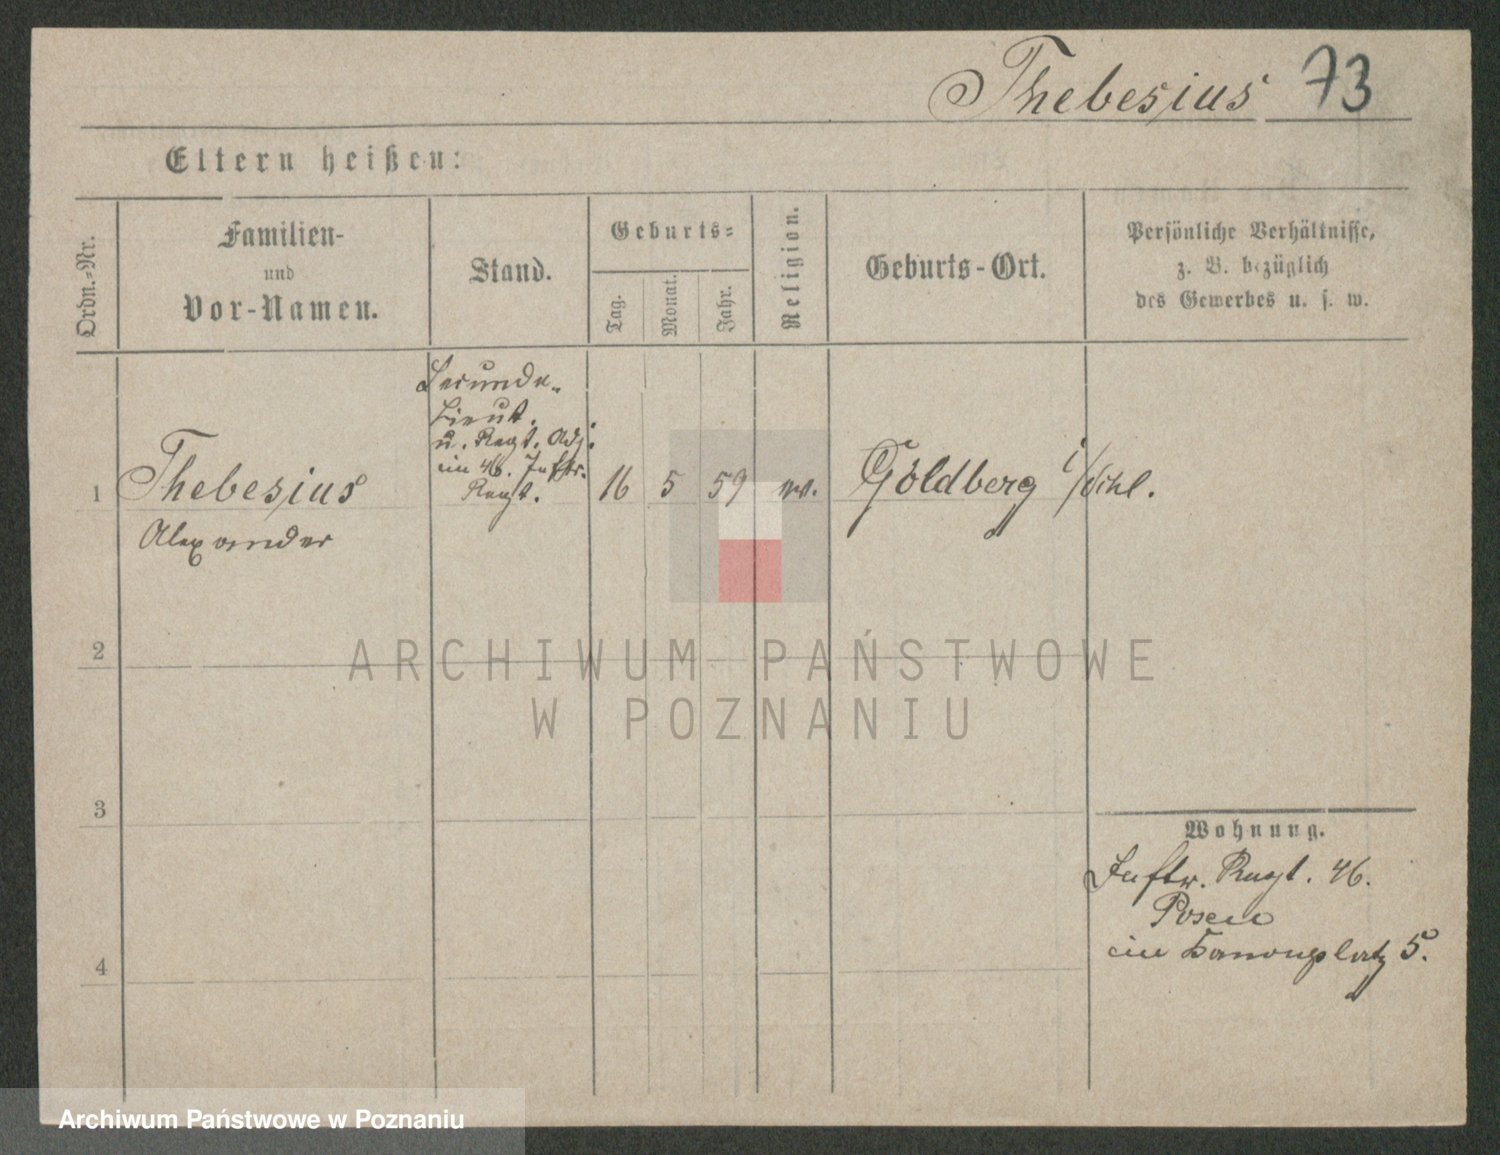 Thebesius 73
Eltern heißen:
Ordn.-Nr.
Familien-
und
Vor-Namen.
Stand.
Geburts-
Tag.
Monat.
Jahr.
Religion.
Geburts-Ort.
Persönliche Verhältnisse,
z. B. bezüglich
des Gewerbes u. s. w.
1
Thebesius
Alexander
Seconde-
Lieut.
u. Regt. Adj.
im 46. Inftr.
Regt.
16
5
59
ev.
Goldberg i/Schl.
2
ARCHIWUM PAŃSTWOWE
W POZNANIU
3
Wohnung.
Inftr. Regt. 46.
Posen
Kanonenplatz 5.
4
Archiwum Państwowe w Poznaniu